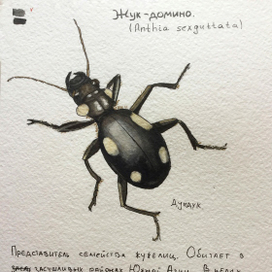 Жук-домино.
(Anthia sexguttata)
Дукдук
Представитель семейства жужелиц. Обитает в
засушливых районах Южной Азии. В целях